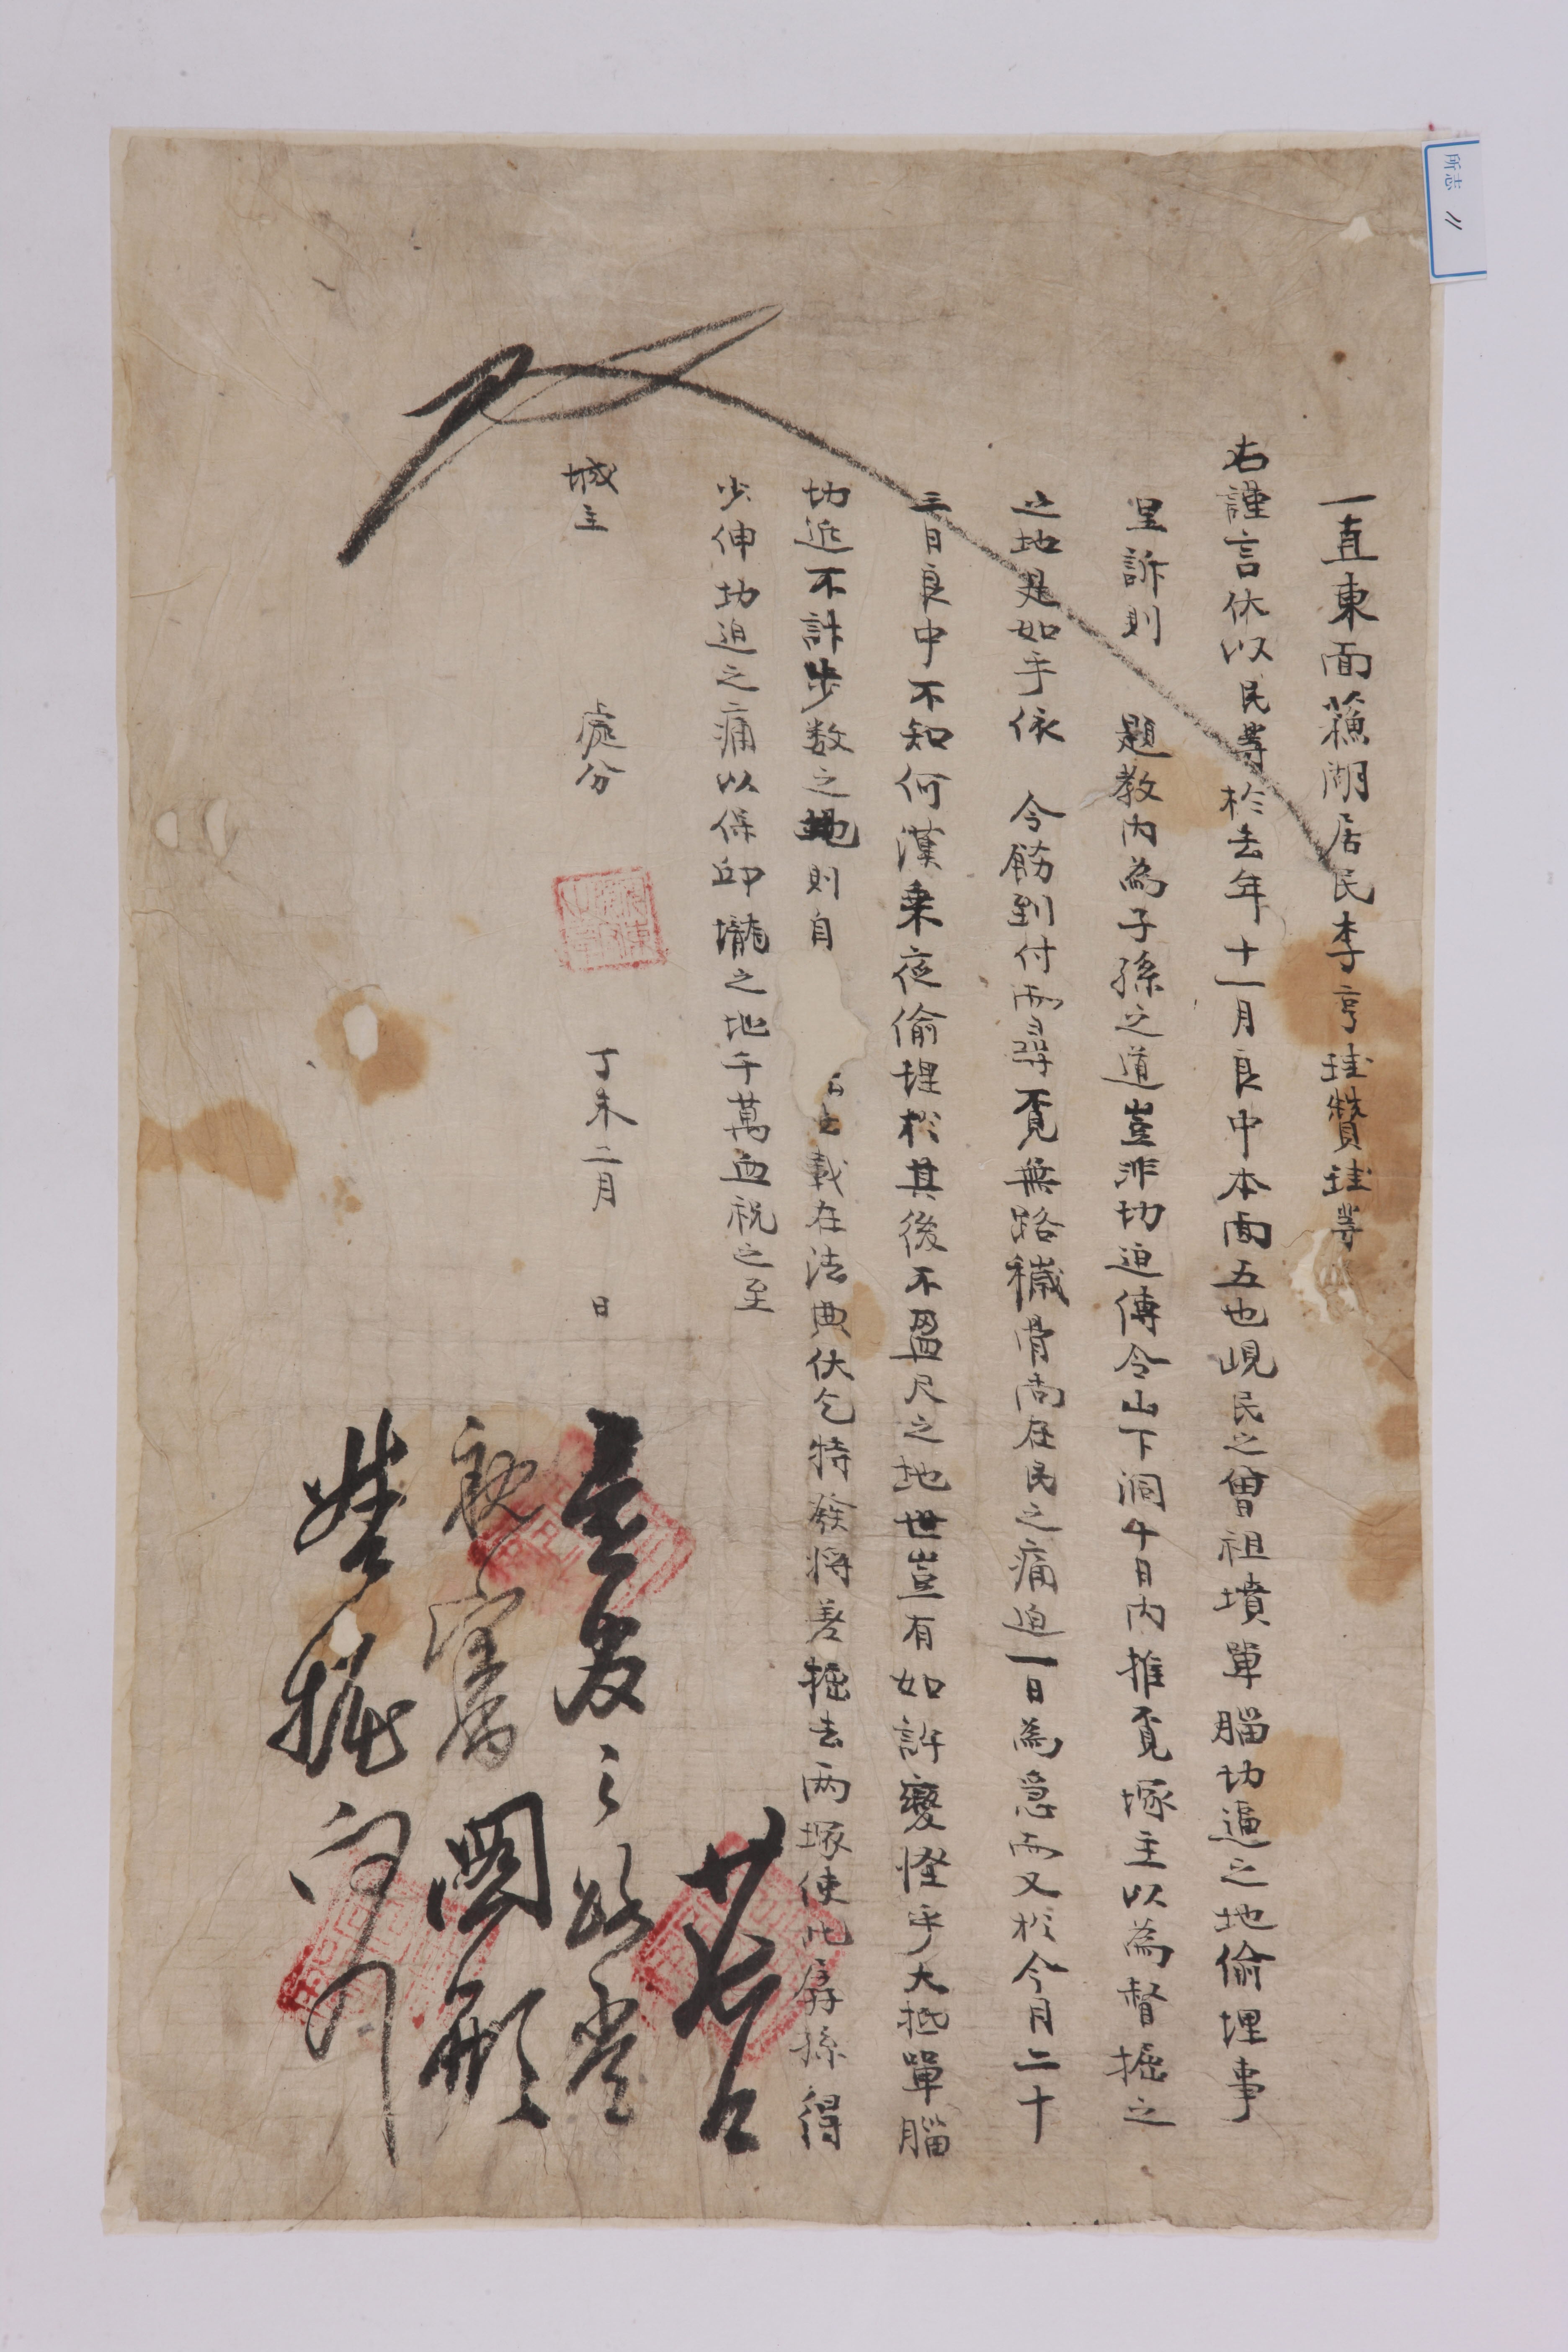 所志 〃
一直東面蘓湖居民李亨珪贊珪等
右謹言伏以民等於去年十一月良中本面五也峴民之曾祖墳單腦切逼之地偷埋事
呈訴則 題教內為子孫之道豈非切迫傳令山下洞今月內推覔塚主以為督掘之
之地是如乎依 令飭到付而尋覔無路穢骨尚在民之痛迫一日為急而又於今月二十
三日良中不知何漢乗夜偷埋於其後不盈尺之地世豈有如許變怪乎大抵單腦
切近不計步数之地則自 載在法典伏乞特發將差掘去兩塚使此孱孫得
少伸切迫之痛以保邱壠之地千萬血祝之至
城主 處分
丁未二月 日
廿七日
親審圖形
督掘向事